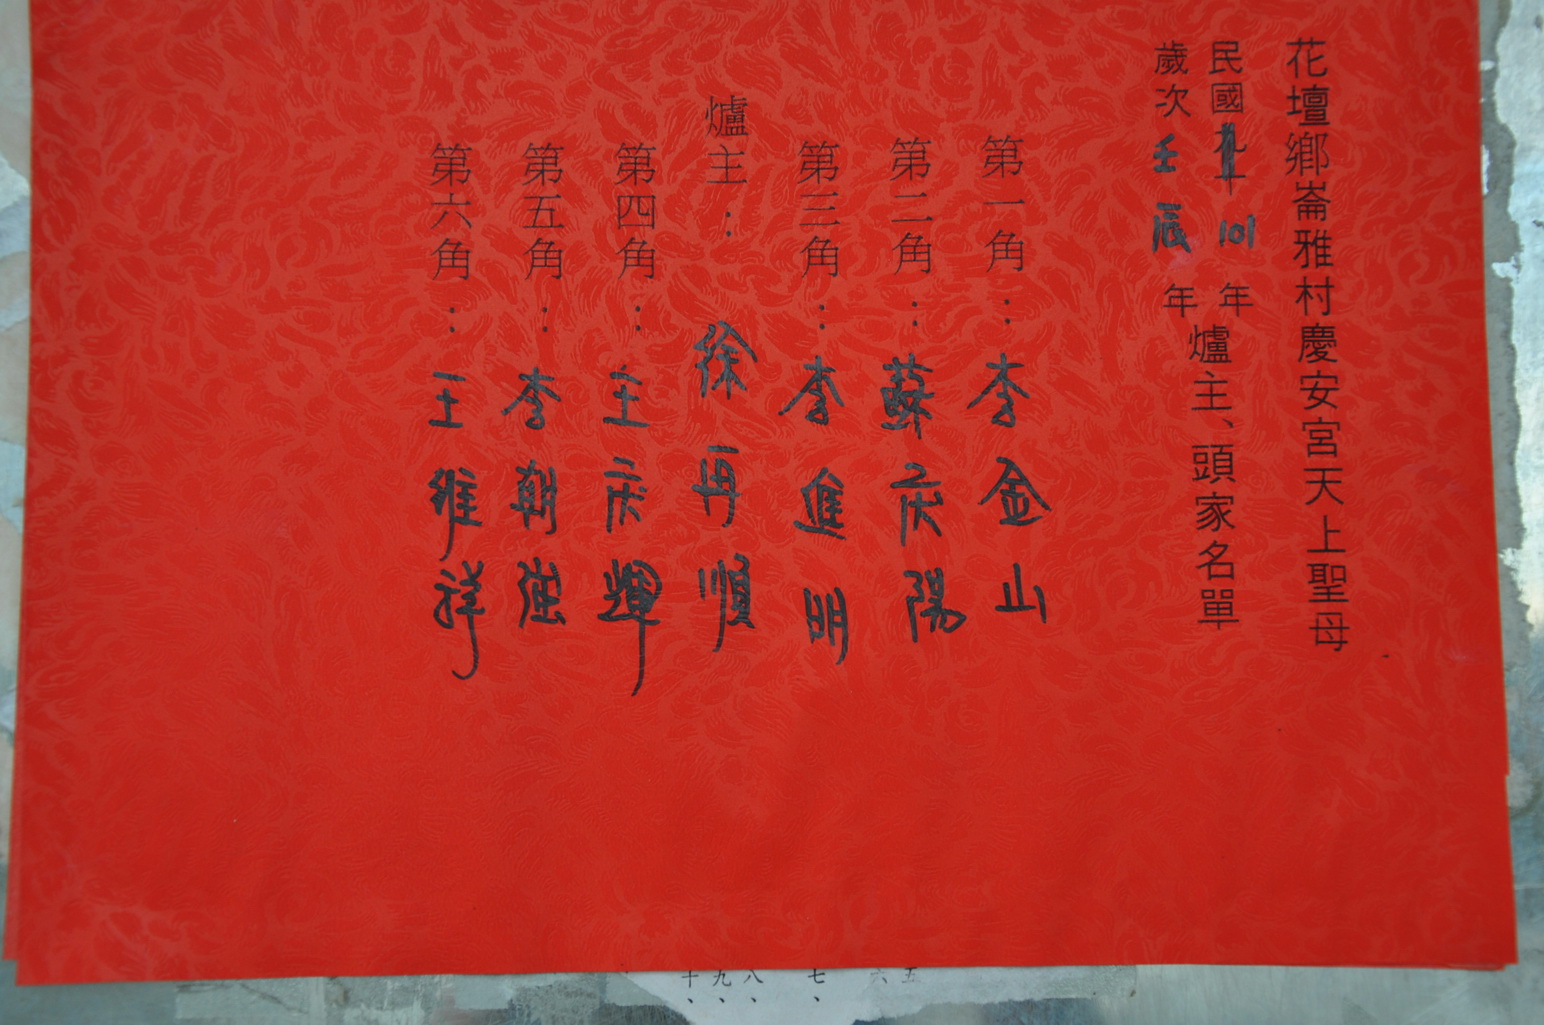 花壇鄉崙雅村慶安宮天上聖母
民國101年
歲次壬辰年
爐主、頭家名單
第一角：李金山
第二角：蘇庆陽
第三角：李進明
爐主：徐再順
第四角：王庆輝
第五角：李朝強
第六角：王維祥
五
六
七、
八、
九、
十、